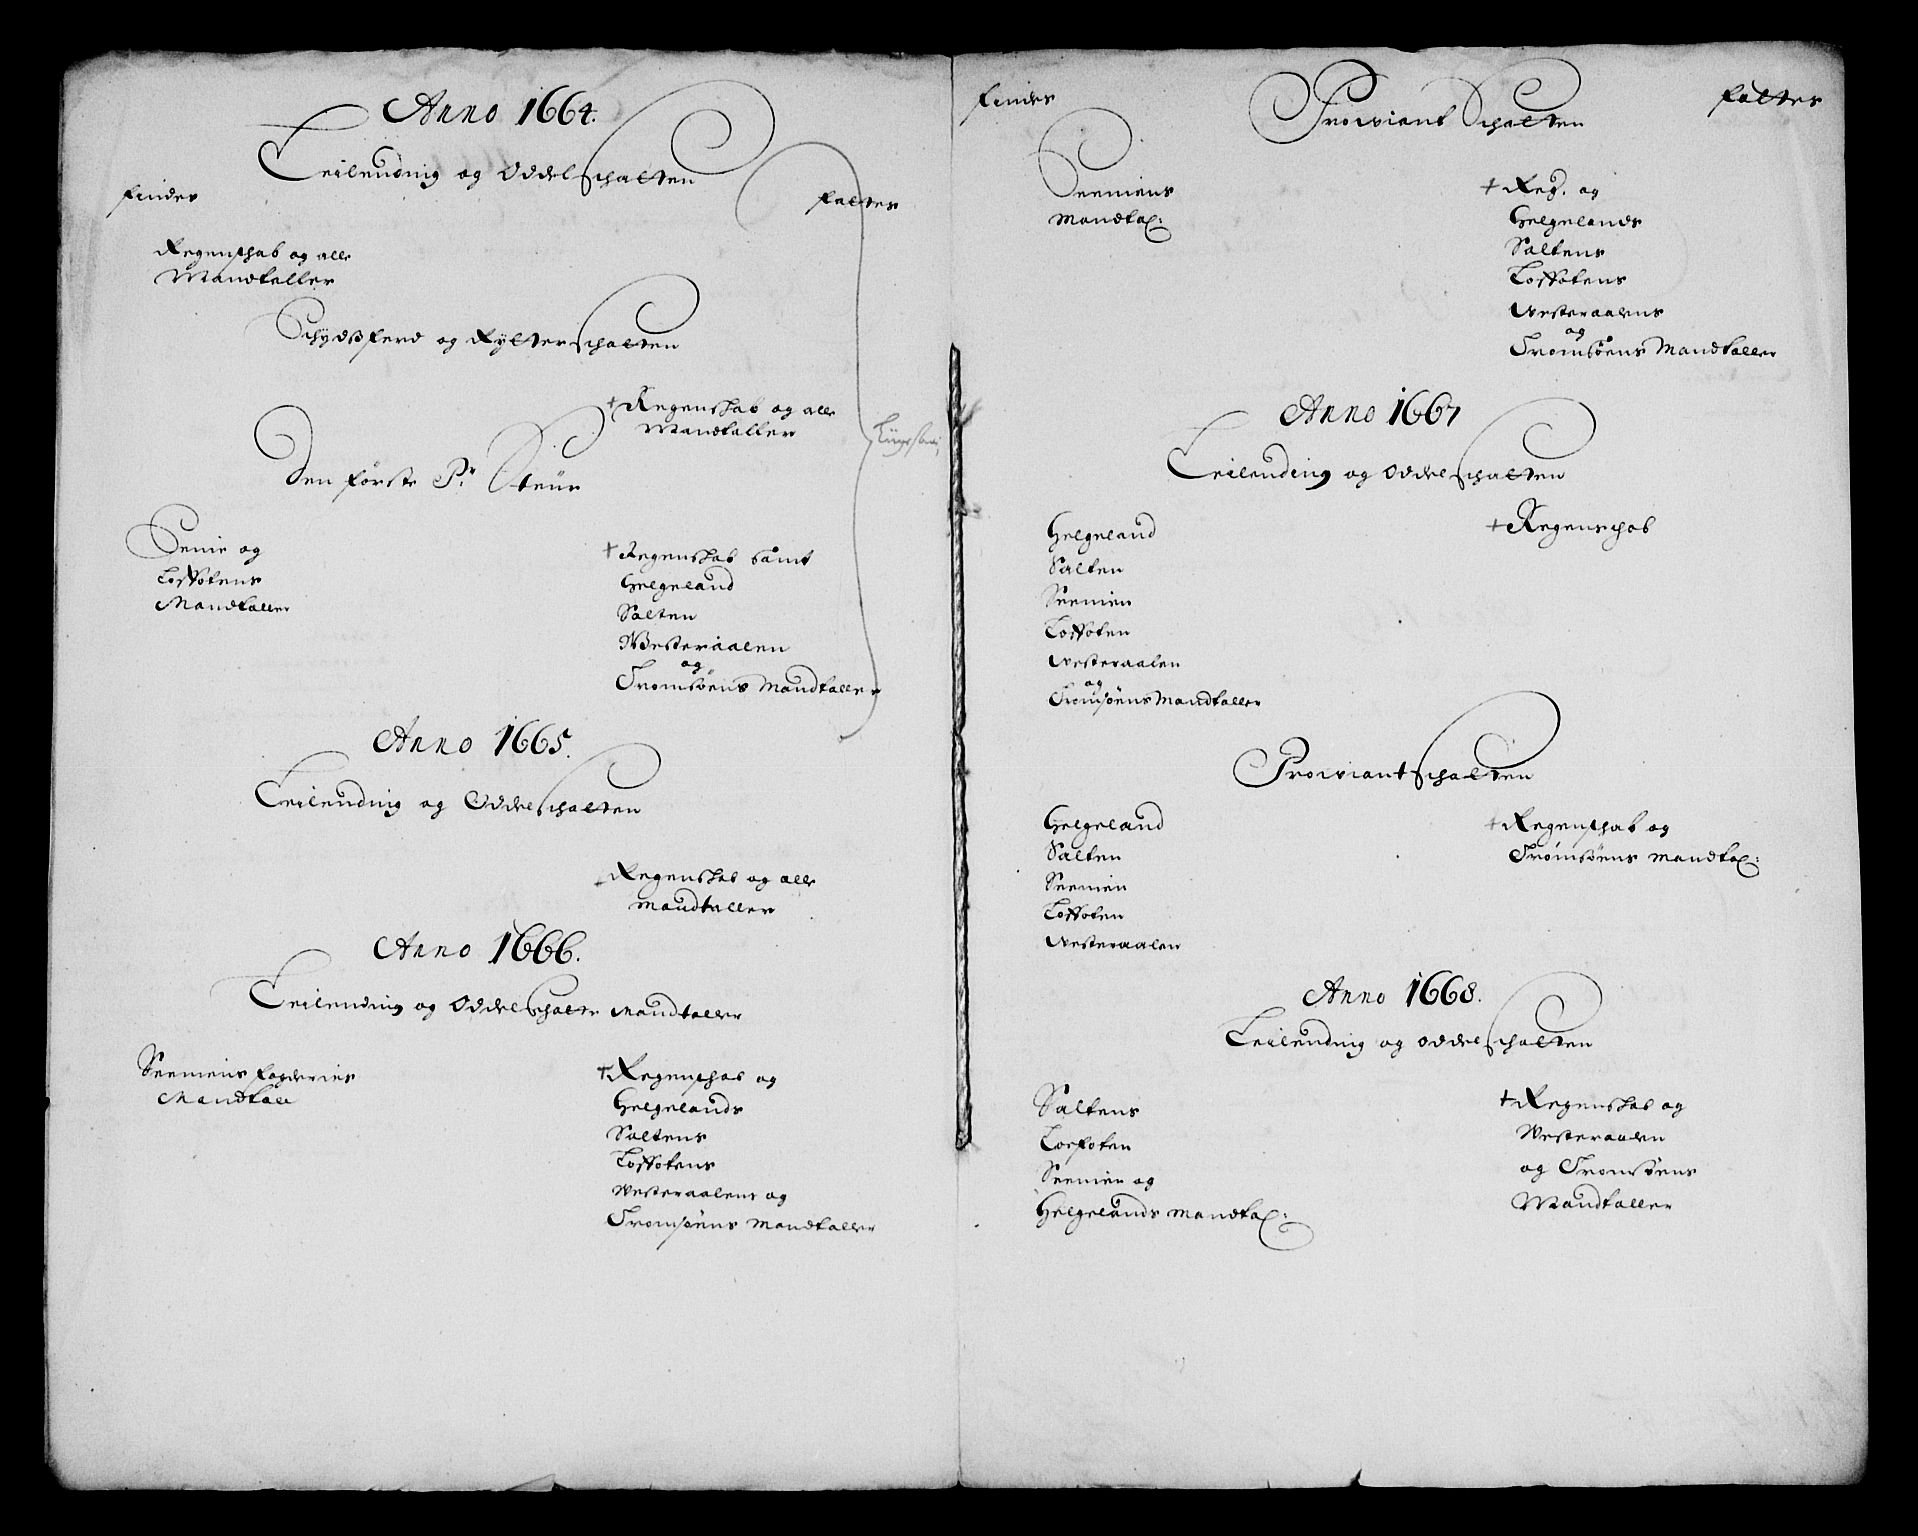 Anno 1664.
Leilending og Oddel Schatten
findes
fattes
Regenschab og alle
Mandtaller
Schydtzferd og Rytter Schatten
+ Regenskab og alle
Mandtaller
Den første Pr. Steur
Senie og
Loffotens
Mandtaller
+ Regenskab samt
Helgeland
Salten
Westeraalen
og
Tromsøens Mandtaller
Anno 1665.
Leilending og Oddel Schatten
Regenskab og alle
Mandtaller
Anno 1666.
Leilending og Oddel Schatte Mandtaller
Seeniens fogderies
Mandtall
+ Regenschab og
Helgelands
Saltens
Loffotens
Westeraalens og
Tromsøens Mandtaller
findes
Prowiant Schatten
fattes
Seeniens
Mandtal:
+ Reg. og
Helgelands
Saltens
Loffotens
Westeraalens
og
Tromsøens Mandtaller
Anno 1667
Leilending og Oddel Schatten
Helgeland
Salten
Seenien
Loffoten
Westeraalen
og
Tromsøens Mandtaller
+ Regenschab
Prowiant Schatten
Helgeland
Salten
Seenien
Loffoten
Westeraalen
+ Regenschab og
Tromsøens Mandtal:
Anno 1668.
Leilending og Oddel Schatten
Saltens
Loffoten
Seenien og
Helgelands Mandtal:
+ Regenskab og
Westeraalen
og Tromsøens
Mandtaller